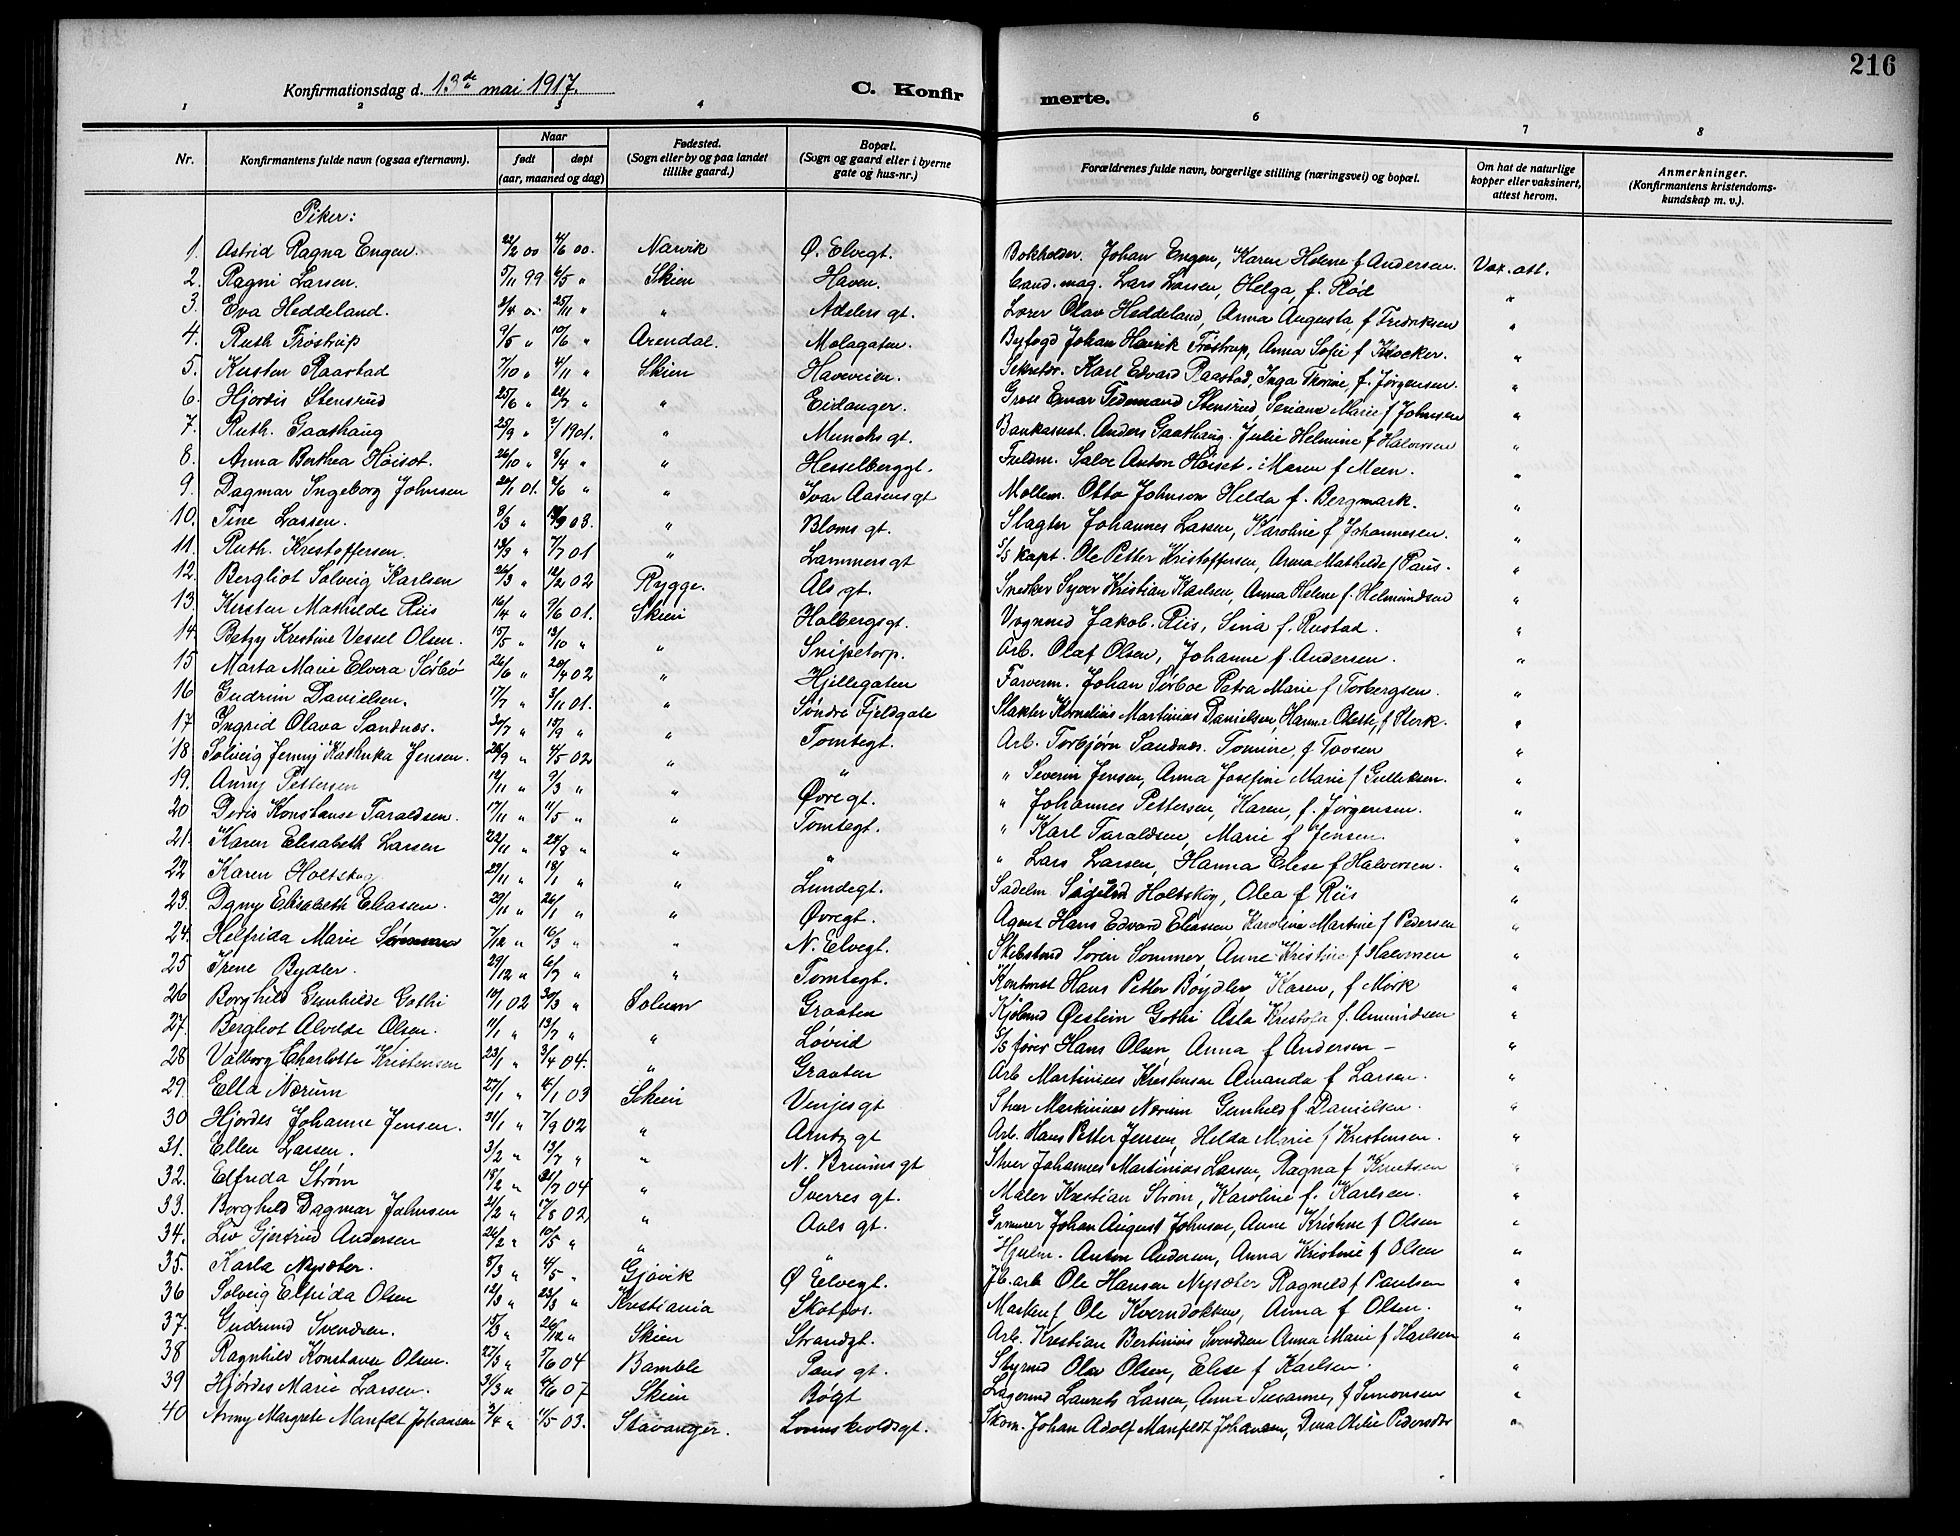 216
Konfirmationsdag d. 13de mai 1917.
C. Konfirmerte.
1 2 3 4 6 7 8
Nr. Konfirmantens fulde navn (ogsaa efternavn). Naar født døpt (aar, maaned og dag) Fødested. (Sogn eller by og paa landet tillike gaard.) Bopæl. (Sogn og gaard eller i byerne gate og hus-nr.) Forældrenes fulde navn, borgerlige stilling (næringsvei) og bopæl. Om hat de naturlige kopper eller vaksinert, attest herom. Anmerkninger. (Konfirmantens kristendomskundskap m. v.).
Piker:
1. Astrid Ragna Engen. 22/2 00 4/6 00. Narvik Ø. Elvegt. Bokholder Johan Engen, Karen Helene f Andersen. Vax. att.
2. Ragni Larsen. 5/11 99 6/5 " Skien Haven. Cand. mag. Lars Larsen, Helga, f. Rød "
3. Eva Heddeland. 2/4 25/11 " " Adelers gt. Lærer Olav Heddeland, Anna Augusta, f Fredriksen "
4. Ruth Frøstrup 9/5 " 10/6 " Arendal. Molagaten. Byfogd Johan Henrik Frøstrup, Anna Sofie f Kløcker. "
5. Kirsten Raastad 7/10 " 4/11 " Skien Haveveien. Sekretær. Karl Edvard Raastad, Inga Thorine, f. Jørgensen. "
6. Hjordis Stensrud 25/6 " 22/7 " " Eidanger. Gross Einar Fedemand Stensrud, Marie f Johnsen "
7. Ruth. Gaathaug 25/9 " 2/1 1901. " Munchs gt. Bankassist. Anders Gaathaug. Julie Helmine f Halvorsen "
8. Anna Berthea Høiset. 26/10 " 8/4 " " Hesselberggt. Fuldm. Anton Høiset. Maren f Meen. "
9. Dagmar Ingeborg Johnsen 20/1 01. 2/6 " " Ivar Aasens gt Møllem. Otto Johnson Helda f. Bergmark. "
10. Tine Lassen. 8/3 " 03. " Bloms gt. Slagter Johannes Lassen, Karoline f Johannesen. "
11. Ruth. Kristoffersen. 13/3 " 7/7 01 " Lammers gt S/S kapt. Ole Petter Kristoffersen, Anna Mathilde f Paus. "
12. Bergliot Solveig Karlsen 26/3 " 12/2 02 Rygge. Als. gt. Snekker Syver Kristian Karlsen, Anna Helene f. Helmundsen "
13. Kirsten Mathilde Riis 16/4 " 9/6 01. Skien Holbergsgt. Vognmd Jakob. Riis, Sina f. Rustad. "
14. Betzy Kristine Vessel Olsen. 15/5 " 13/10 " " Snipetorp. Arb. Olaf Olsen, Johanne f. Andersen. "
15 Marta Marie Elvera Sørbø 26/6 " 20/4 02 " Hjellegaten Farverm. Johan Sørboe Petra Marie f Torbergsen. "
16 Gudrun Danielsen. 17/7 " 3/11 01. " Søndre Fjeldgate Slakter Kornelius Martinius Danielsen, Hanna Oleste, f Sterk. "
17 Ingrid Olava Sandnæs. 30/7 " 15/9 " " Tomtegt. Arb. Torbjørn Sandnæs. Tomine f Tovsen "
18. Solveig Jenny Kathinka Jensen. 28/9 " 4/5 02 " " " Severin Jensen, Anna Josefine Marie f Gulliksen. "
19. Anny Pettersen 12/11 " 9/3 " " Øvre gt. " Johannes Pettersen, Karen, f. Jørgensen. "
20 Doris Konstanse Taraldsen. 17/11 " 11/5 " " Tomtegt. " Karl Taraldsen, Marie f Jensen. "
21. Karen Elisabeth Larsen 22/11 " 24/8 " " " " Lars Larsen, Hanna Elise f Halvorsen. "
22 Karen Holtskog 27/11 " 18/1 " " Lundegt. Sadelm Holtskog, Olea f Riis "
23. Dgny Elisabeth Eliassen. 29/11 " 26/1 " " Øvregt. Agent Hans Edvard Eliassen Karoline Martine f Pedersen "
24. Helfrida Marie 7/12 " 16/3 " " N. Elvegt. Skibstmd Sören Sommer, Anne Kristine f Halvorsen "
25 Irene Bydler. 29/12 " 6/7 " " Tomtegt. Kontorist Hans Petter Böydler Karen, f Mörk "
26 Borghild Gunhilde Gothi 10/1 02 30/3 " Solum Graaten Kjøbmd Øistein Gothi Asla f. Amundsen "
27. Bergliot Alvilde Olsen. 11/1 " 13/7 " " Løvlid S/S fører Hans Olsen, Anna f Andersen - "
28 Valborg Charlotte Kristensen 23/1 " 3/4 04. " Graaten Arb. Martinius Kristensen Amanda f Larsen. "
29. Ella Nærum 27/1 " 4/1 03 Skien Vinjes gt Martinius Nærum Gunhild f Danielsen. "
30 Hjordes Johanne Jensen. 31/1 " 7/9 02 " Arntz gt Arb. Hans Petter Jensen, Helda Marie f Kristensen. "
31. Ellen Larsen. 3/2 " 13/7 " " N. Bruuns gt Johannes Martinius Larsen, Ragna f Knutsen "
32. Elfrida Strøm 18/2 " 31/7 04 " Sverres gt. Maler Kristian Strøm, Karoline f. Karlsen. "
33. Borghild Dagmar Johnsen 21/2 " 17/8 02, " Aals gt. Johan August Johnsen, Anne Kristine f Olsen "
34. Liv Gjertrud Andersen 26/2 " 10/5 " " " Hjulm. Anton Andersen, Anna Kristine f Olsen "
35. Karla Nysæter. 8/3 " 4/5 " Gjøvik Ø Elvegt. Jb. arb Ole Hansen Nysæter Ragnild f Paulsen "
36 Solveig Elfrida Olsen 12/3 " 23/3 " Kristiania Skotfos. Ole Kverndokken, Anna f Olsen. "
37. Gudrund Svendsen. 15/3 " 26/12 " Skien Strandgt. Arb. Kristian Bertinius Svendsen Anna Marie f Karlsen "
38 Ragnhild Konstanse Olsen. 27/3 " 5/6 04 Bamble Paus gt. Styrmd Olav Olsen, Elise f Karlsen. "
39 Hjørdes Marie Larsen. 31/3 " 4/6 07 Skien Bøgt Lagermd Laurits Larsen, Anna Susanne, f Simonsen "
40 Anny Margrete Manfeldt Johansen 2/4 " 11/5 03. Stavanger. Løvenskioldsgt. Skom. Johan Adolf Manfeldt Johansen, Dina Otilie "